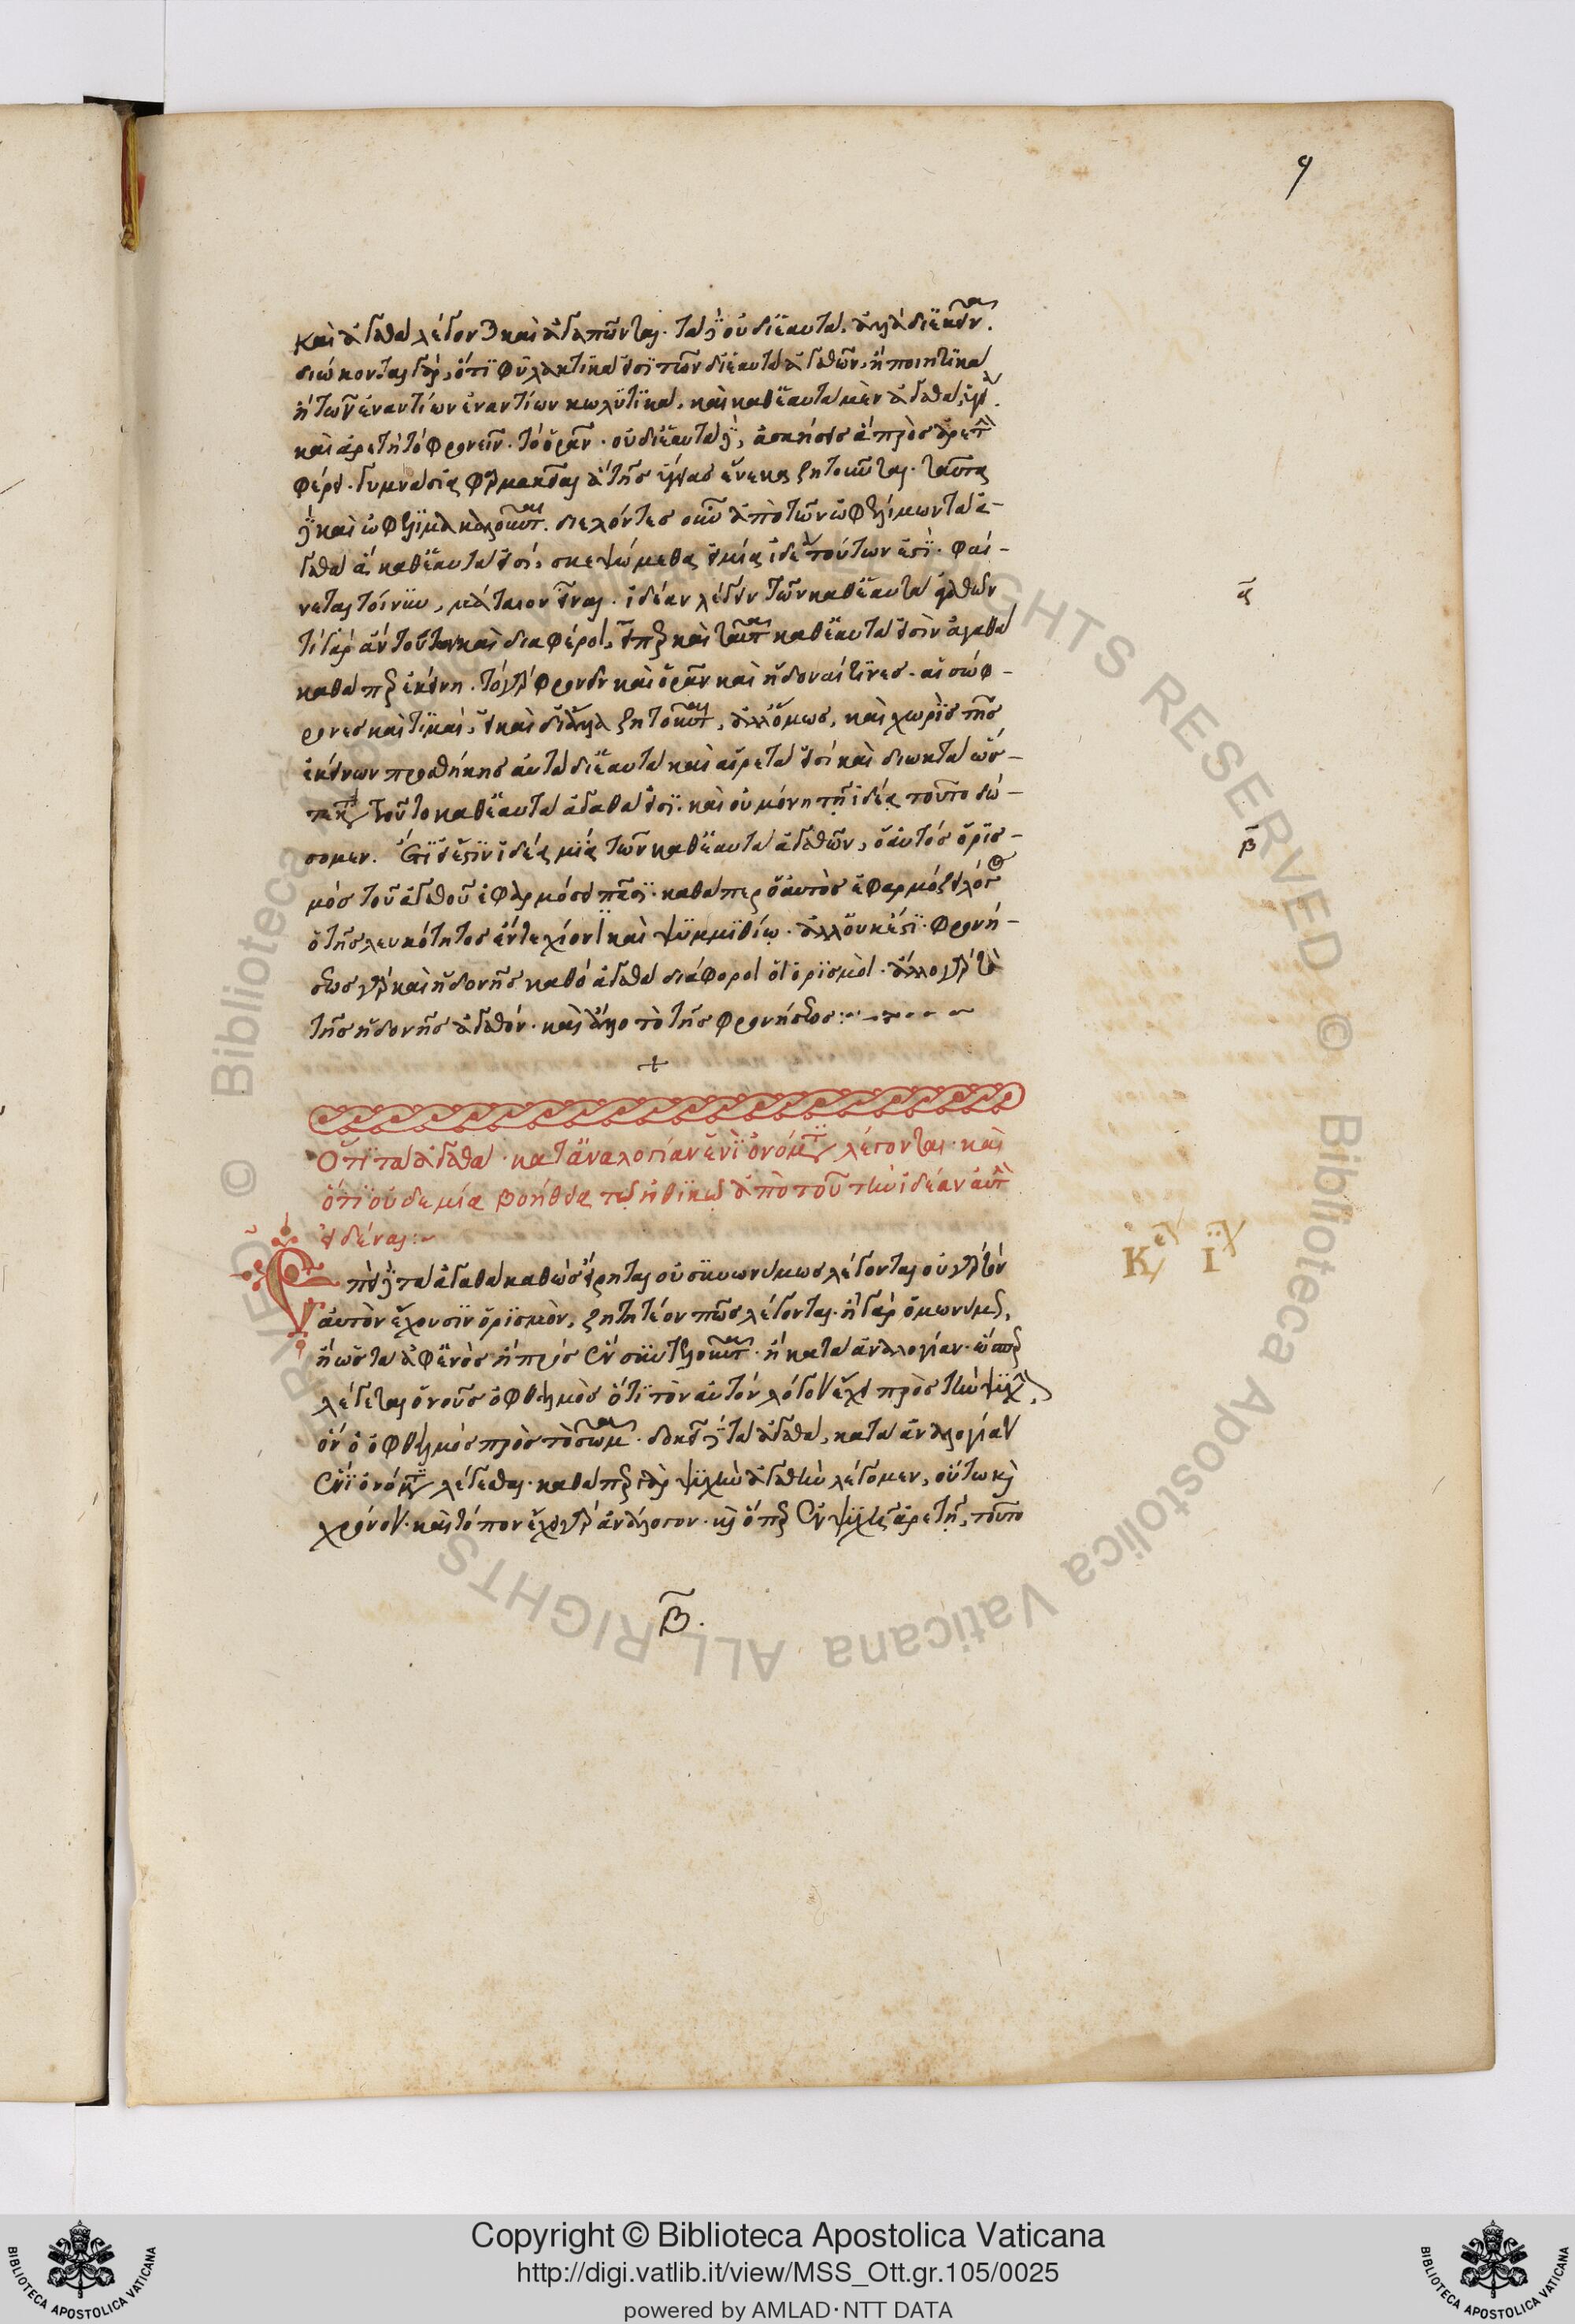 9
καὶ ἀγαθὰ λέγονται καὶ ἀγαπῶνται. τὰ δὲ οὐ δι' ἑαυτὰ, ἀλλὰ δι' ἐκεῖνα.
διώκονται γὰρ, ὅτι φυλακτικὰ εἰσὶ τῶν δι' ἑαυτὰ ἀγαθῶν, ἢ ποιητικὰ
ἢ τῶν ἐναντίων ἐναντίων κωλυτικά. καὶ καθ' ἑαυτὰ μὲν ἀγαθὰ,
καὶ ἀρετὴ τὸ φρονεῖν. τὸ ὁρᾶν. οὐ δι' ἑαυτὰ δὲ, ἀσκήσεις αἱ πρὸς ἀρετὴν
φέρουσαι. γυμνασία φαρμακεῖαι αἳ τῆς ὑγείας ἕνεκα ζητοῦνται. ταῦτα
δὲ καὶ ὠφέλιμα καλοῦνται. διελόντες οὖν ἀπὸ τῶν ὠφελίμων τὰ ἀ-
γαθὰ ἃ καθ' ἑαυτὰ εἰσί, σκεψώμεθα εἰ μία ἰδέα τούτων ἐστί. φαί-
νεται τοίνυν, μάταιον εἶναι. ἰδέαν λέγειν τῶν καθ' ἑαυτὰ ἀγαθῶν
τί γὰρ ἂν τούτων καὶ διαφέροι, εἴπερ καὶ ταῦτα καθ' ἑαυτὰ εἰσὶν ἀγαθὰ
καθάπερ ἐκείνη. τό γὰρ φρονεῖν καὶ ὁρᾶν καὶ ἡδοναί τινες. αἱ σώφ-
ρονες καὶ τιμαὶ, εἰ καὶ δι' ἄλλα ζητοῦνται, ἀλλ' ὅμως, καὶ χωρὶς τῆς
ἐκείνων προσθήκης αὐτὰ δι' ἑαυτὰ καὶ αἱρετὰ εἰσί καὶ διωκτὰ ὥσ-
τε κατὰ τοῦτο καθ' ἑαυτὰ ἀγαθὰ εἰσί. καὶ οὐ μόνη τῇ ἰδέᾳ τοῦτο δώ-
σομεν. Ἔτι εἰ ἔστιν ἰδέα μία τῶν καθ' ἑαυτὰ ἀγαθῶν, ὁ αὐτός ὁρισ-
μὸς τοῦ ἀγαθοῦ ἐφαρμόσει πᾶσι. καθάπερ ὁ αὐτὸς ἐφαρμόζει λόγος
ὁ τῆς λευκότητος ἔν τε χιόνι καὶ ψιμμιθίῳ. ἀλλ' οὐκ ἔστι. φρονή-
σεως γὰρ καὶ ἡδονῆς καθὸ ἀγαθὰ διάφοροι οἱ ὁρισμοί. ἄλλο γὰρ τὸ
τῆς ἡδονῆς ἀγαθόν. καὶ ἄλλο τὸ τῆς φρονήσεως:
+
Ὅτι τὰ ἀγαθὰ κατ' ἀναλογίαν ἑνὶ ὀνόματι λέγονται. καὶ
ὅτι οὐδεμία βοήθεια τῷ ἠθικῷ ἀπὸ τοῦ τὴν ἰδέαν αὐτὴν
εἰδέναι:~
Ἐπεὶ δὲ τὰ ἀγαθὰ καθὼς εἴρηται οὐ συνωνύμως λέγονται οὐ γὰρ τὸν
αὐτὸν ἔχουσιν ὁρισμὸν, ζητητέον πῶς λέγονται. ἢ γὰρ ὁμωνύμως,
ἢ ὡς τὰ ἀφ' ἑνὸς ἢ πρὸς ἓν συντελοῦντα. ἢ κατὰ ἀναλογίαν. ὥσπερ
λέγεται ὁ νοῦς ὀφθαλμὸς ὅτι τὸν αὐτὸν λόγον ἔχει πρὸς τὴν ψυχὴν,
ὃν ὁ ὀφθαλμὸς πρὸς τὸ σῶμα. δοκεῖ δὲ τὰ ἀγαθὰ, κατὰ ἀναλογίαν
ἑνὶ ὀνόματι λέγεσθαι. καθάπερ γὰρ ψυχὴν ἀγαθὴν λέγομεν, οὕτω καὶ
χρόνον. καὶ τόπον ἔχει γὰρ ἀνάλογον. καὶ ὅπερ ἐν ψυχῇ ἀρετὴ, τοῦτο
α
β
β.
Copyright © Biblioteca Apostolica Vaticana
http://digi.vatlib.it/view/MSS_Ott.gr.105/0025
powered by AMLAD·NTT DATA
BIBLIOTECA APOSTOLICA VATICANA
BIBLIOTECA APOSTOLICA VATICANA
© Biblioteca Apostolica Vaticana ALL RIGHTS RESERVED